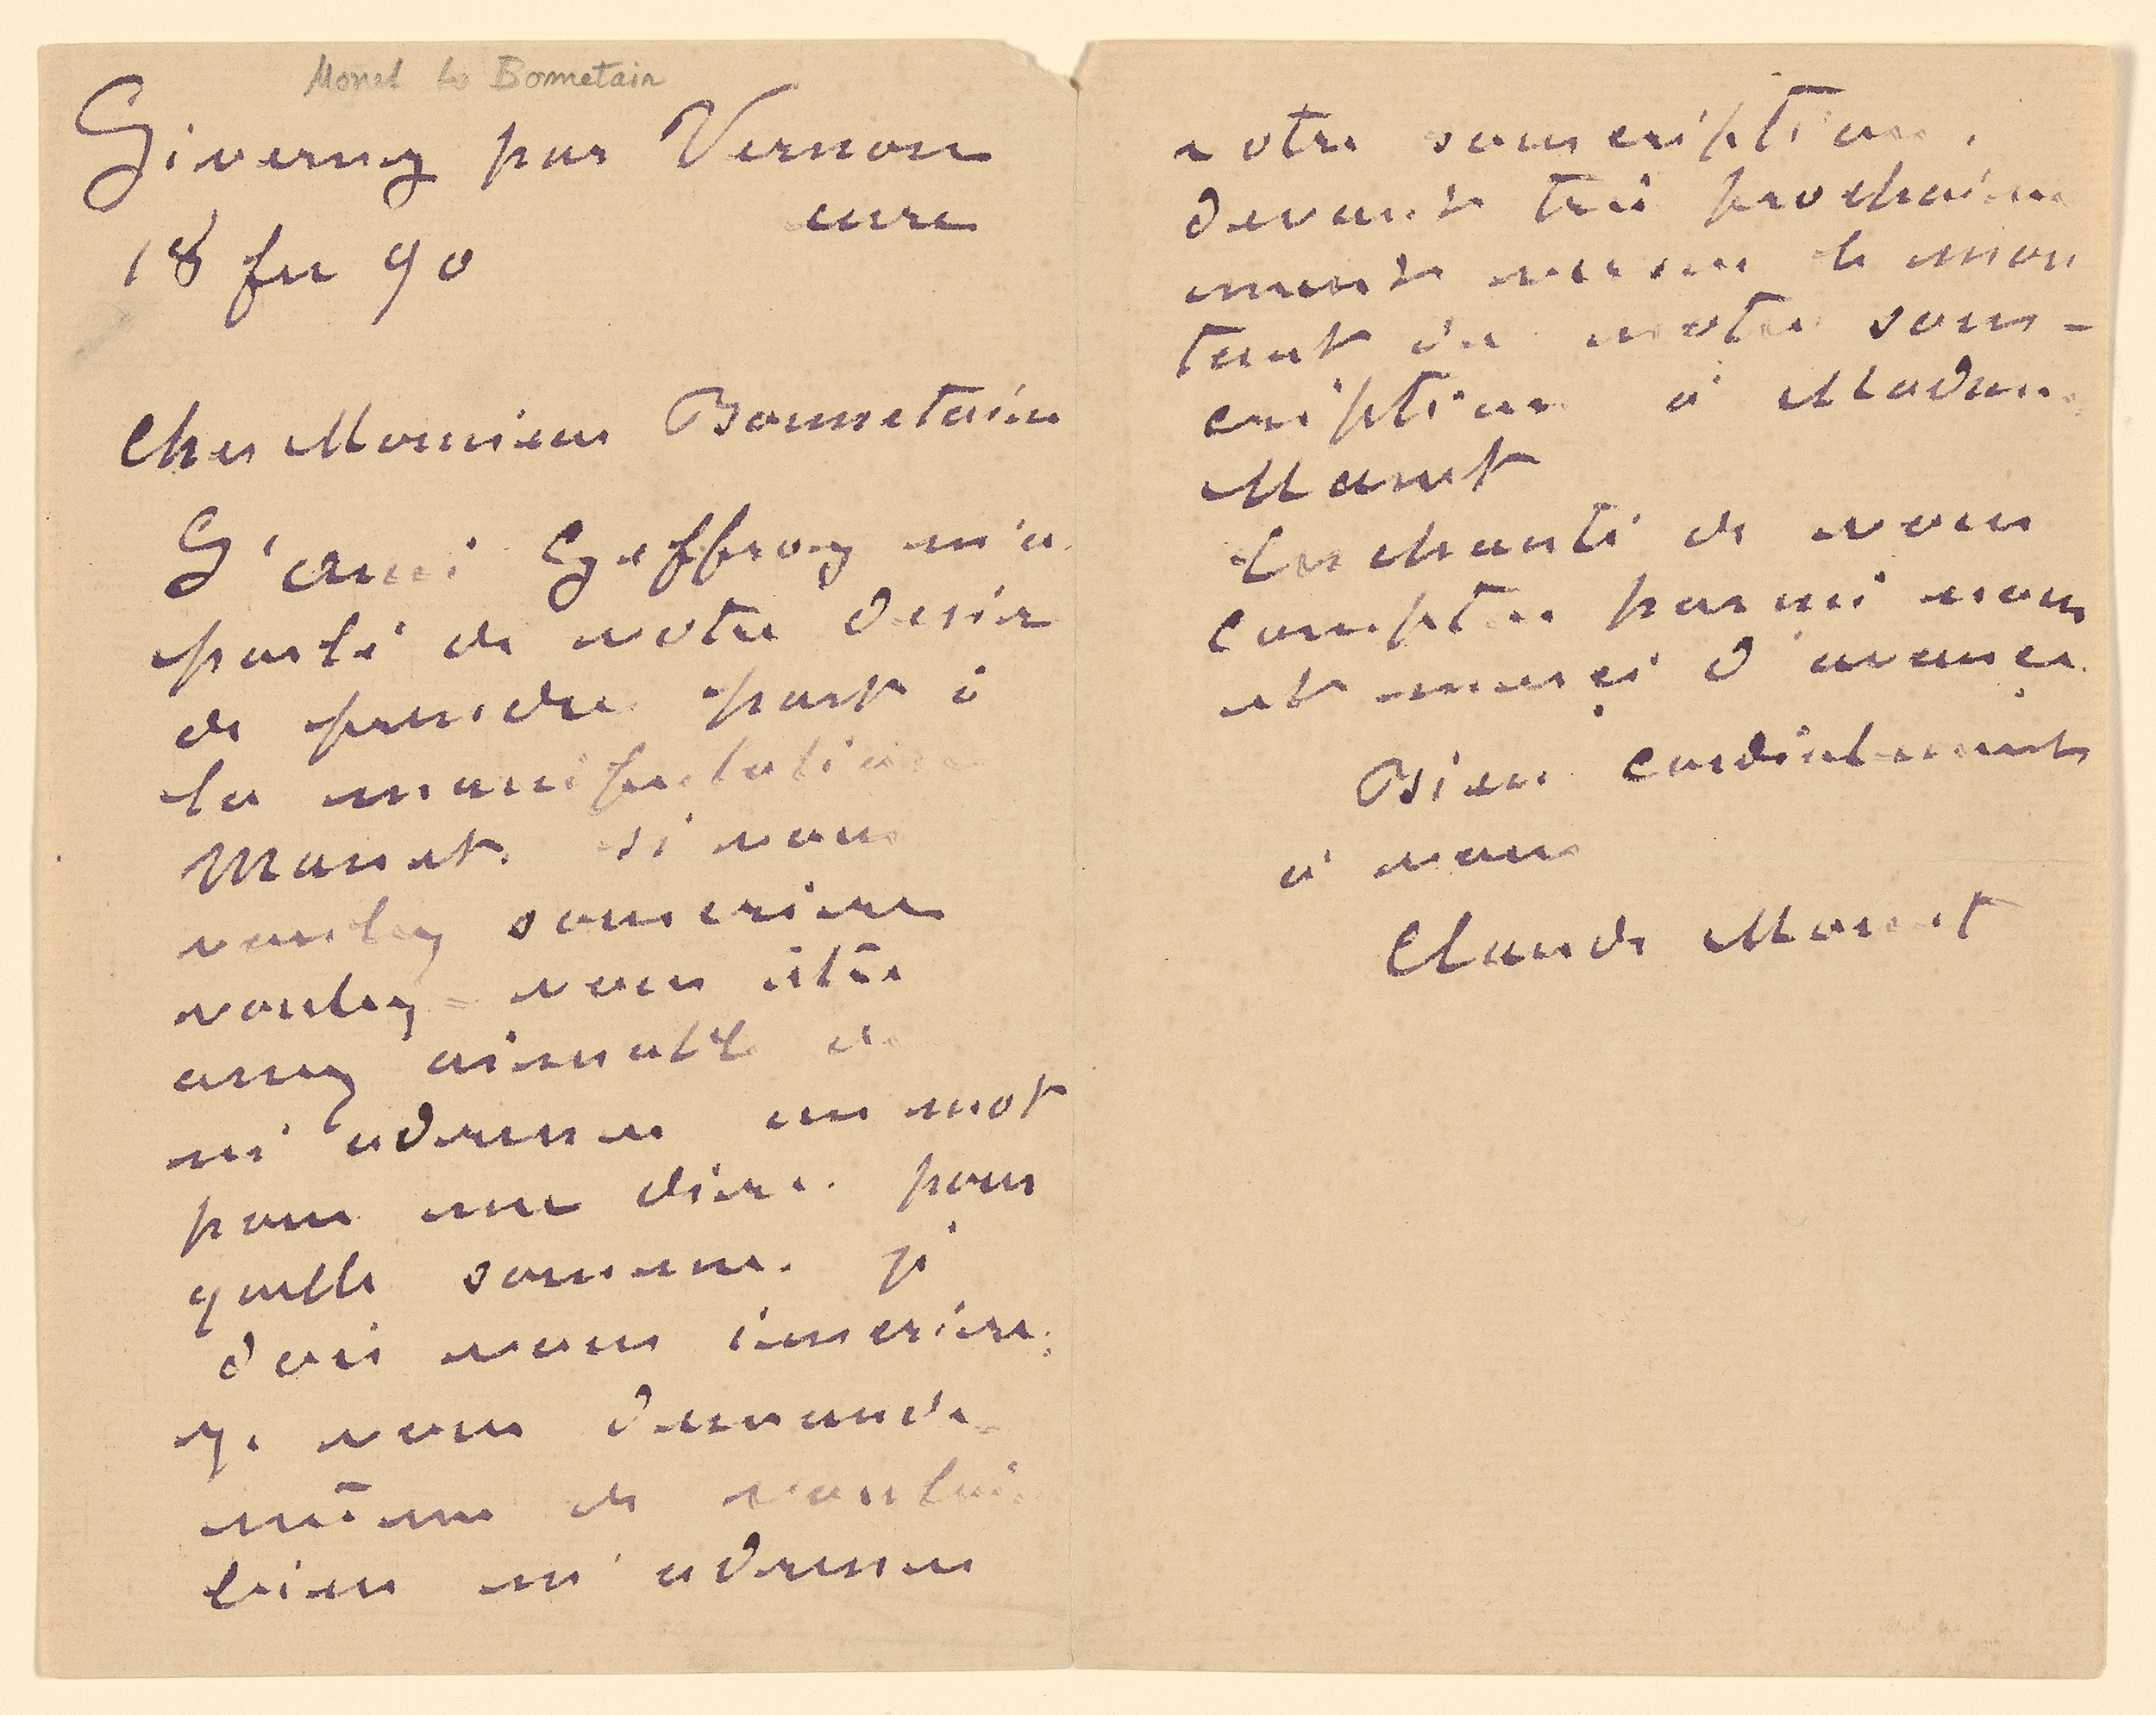 Monet to Bonnetain
Giverny par Vernon
eure
18 fev 90
Cher Monsieur Bonnetain
L'ami Geffroy m'a
parlé de votre desir
de prendre part à
la manifestation
Manet. si vous
voulez souscrire
voulez-vous être
assez aimable de
m'adresser un mot
pour me dire pour
quelle somme je
dois vous inscrire,
je vous demande
même de vouloir
bien m'adresser
votre souscription,
devant très prochaine
ment verser le mon
tant de notre sous-
cription à Madame
Manet
Enchanté de vous
compter parmi nous
et merci d'avance.
Bien cordialement
à vous
Claude Monet